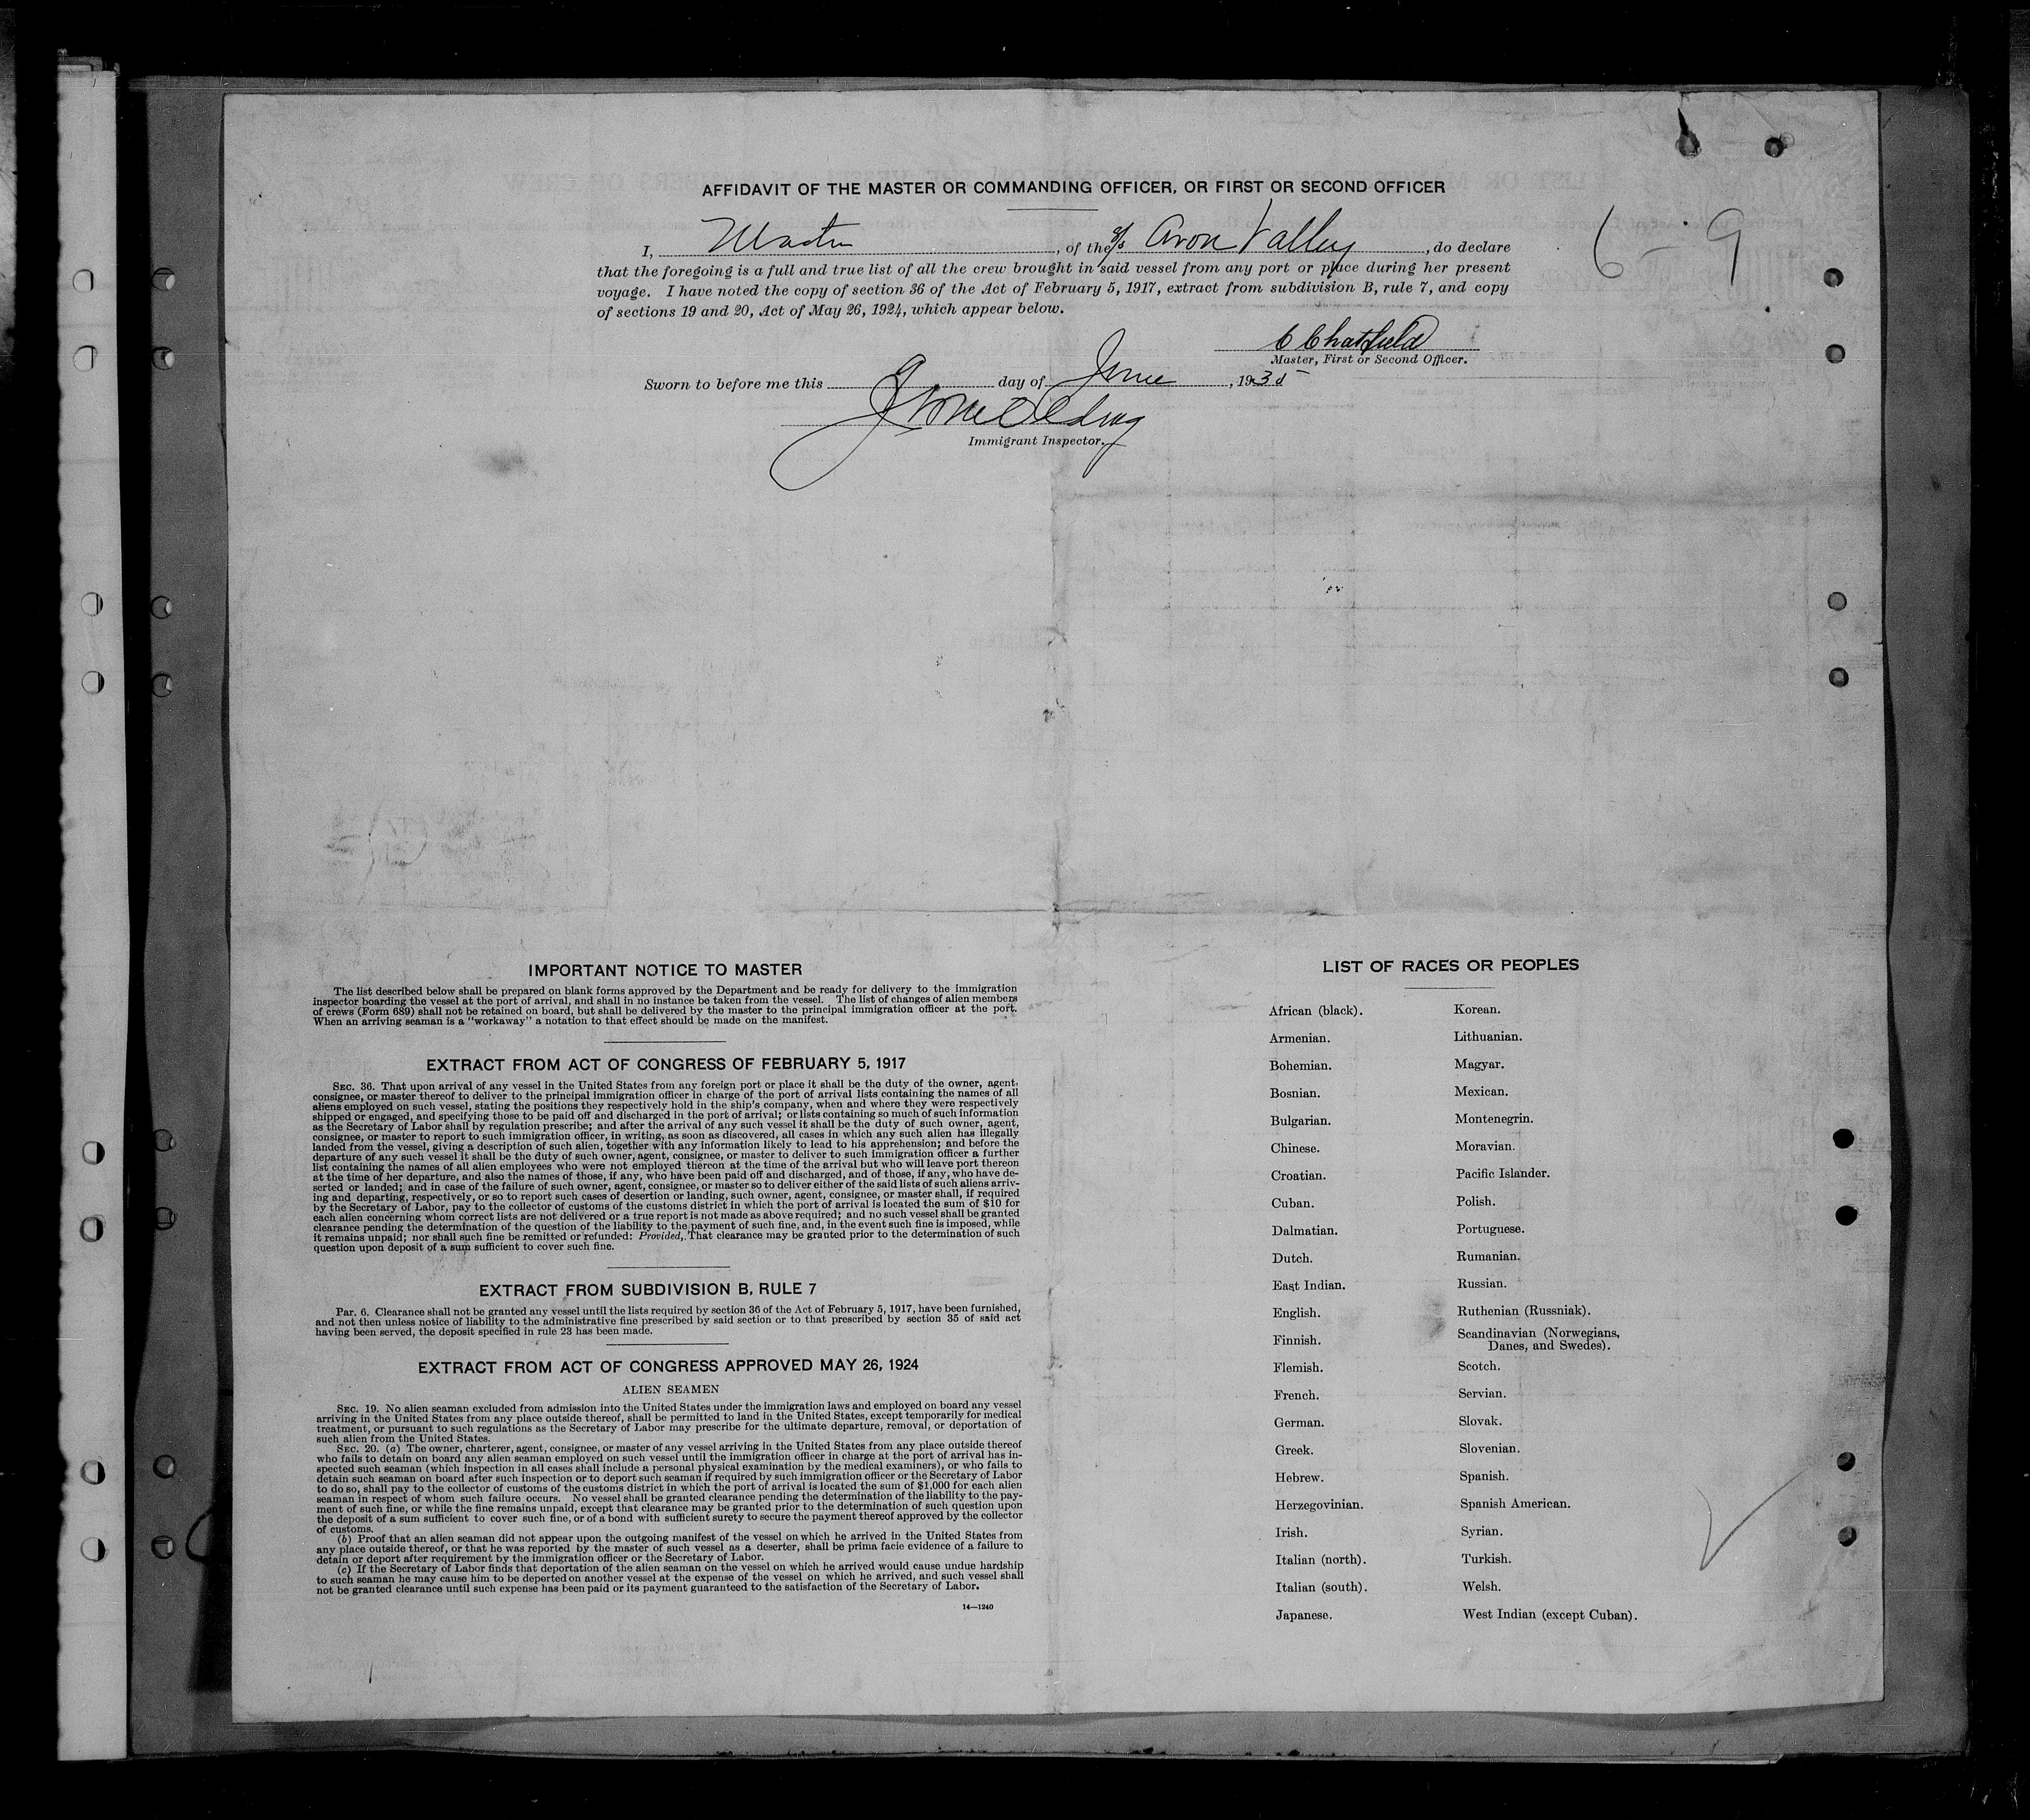 AFFIDAVIT OF THE MASTER OR COMMANDING OFFICER, OR FIRST OR SECOND OFFICER
I, Master, of the s/s Avon Valley, do declare
that the foregoing is a full and true list of all the crew brought in said vessel from any port or place during her present
voyage. I have noted the copy of section 36 of the Act of February 5, 1917, extract from subdivision B, rule 7, and copy
of sections 19 and 20, Act of May 26, 1924, which appear below.
6-9
C Chatfield
Master, First or Second Officer.
Sworn to before me this 9 day of June, 1935
Immigrant Inspector.
IMPORTANT NOTICE TO MASTER
The list described below shall be prepared on blank forms approved by the Department and be ready for delivery to the immigration
inspector boarding the vessel at the port of arrival, and shall in no instance be taken from the vessel. The list of changes of alien members
of crews (Form 689) shall not be retained on board, but shall be delivered by the master to the principal immigration officer at the port.
When an arriving seaman is a "workaway" a notation to that effect should be made on the manifest.
EXTRACT FROM ACT OF CONGRESS OF FEBRUARY 5, 1917
SEC. 36. That upon arrival of any vessel in the United States from any foreign port or place it shall be the duty of the owner, agent,
consignee, or master thereof to deliver to the principal immigration officer in charge of the port of arrival lists containing the names of all
aliens employed on such vessel, stating the positions they respectively hold in the ship's company, when and where they were respectively
shipped or engaged, and specifying those to be paid off and discharged in the port of arrival; or lists containing so much of such information
as the Secretary of Labor shall by regulation prescribe; and after the arrival of any such vessel it shall be the duty of such owner, agent,
consignee, or master to report to such immigration officer, in writing, as soon as discovered, all cases in which any such alien has illegally
landed from the vessel, giving a description of such alien, together with any information likely to lead to his apprehension; and before the
departure of any such vessel it shall be the duty of such owner, agent, consignee, or master to deliver to such immigration officer a further
list containing the names of all alien employees who were not employed thereon at the time of the arrival but who will leave port thereon
at the time of her departure, and also the names of those, if any, who have been paid off and discharged, and of those, if any, who have de-
serted or landed; and in case of the failure of such owner, agent, consignee, or master so to deliver either of the said lists of such aliens arriv-
ing and departing, respectively, or so to report such cases of desertion or landing, such owner, agent, consignee, or master shall, if required
by the Secretary of Labor, pay to the collector of customs of the customs district in which the port of arrival is located the sum of $10 for
each alien concerning whom correct lists are not delivered or a true report is not made as above required; and no such vessel shall be granted
clearance pending the determination of the question of the liability to the payment of such fine, and, in the event such fine is imposed, while
it remains unpaid; nor shall such fine be remitted or refunded: Provided, That clearance may be granted prior to the determination of such
question upon deposit of a sum sufficient to cover such fine.
EXTRACT FROM SUBDIVISION B, RULE 7
Par. 6. Clearance shall not be granted any vessel until the lists required by section 36 of the Act of February 5, 1917, have been furnished,
and not then unless notice of liability to the administrative fine prescribed by said section or to that prescribed by section 35 of said act
having been served, the deposit specified in rule 23 has been made.
EXTRACT FROM ACT OF CONGRESS APPROVED MAY 26, 1924
ALIEN SEAMEN
SEC. 19. No alien seaman excluded from admission into the United States under the immigration laws and employed on board any vessel
arriving in the United States from any place outside thereof, shall be permitted to land in the United States, except temporarily for medical
treatment, or pursuant to such regulations as the Secretary of Labor may prescribe for the ultimate departure, removal, or deportation of
such alien from the United States.
SEC. 20. (a) The owner, charterer, agent, consignee, or master of any vessel arriving in the United States from any place outside thereof
who fails to detain on board any alien seaman employed on such vessel until the immigration officer in charge at the port of arrival has in-
spected such seaman (which inspection in all cases shall include a personal physical examination by the medical examiners), or who fails to
detain such seaman on board after such inspection or to deport such seaman if required by such immigration officer or the Secretary of Labor
to do so, shall pay to the collector of customs of the customs district in which the port of arrival is located the sum of $1,000 for each alien
seaman in respect of whom such failure occurs. No vessel shall be granted clearance pending the determination of the liability to the pay-
ment of such fine, or while the fine remains unpaid, except that clearance may be granted prior to the determination of such question upon
the deposit of a sum sufficient to cover such fine, or of a bond with sufficient surety to secure the payment thereof approved by the collector
of customs.
(b) Proof that an alien seaman did not appear upon the outgoing manifest of the vessel on which he arrived in the United States from
any place outside thereof, or that he was reported by the master of such vessel as a deserter, shall be prima facie evidence of a failure to
detain or deport after requirement by the immigration officer or the Secretary of Labor.
(c) If the Secretary of Labor finds that deportation of the alien seaman on the vessel on which he arrived would cause undue hardship
to such seaman he may cause him to be deported on another vessel at the expense of the vessel on which he arrived, and such vessel shall
not be granted clearance until such expense has been paid or its payment guaranteed to the satisfaction of the Secretary of Labor.
14—1240
LIST OF RACES OR PEOPLES
African (black).
Armenian.
Bohemian.
Bosnian.
Bulgarian.
Chinese.
Croatian.
Cuban.
Dalmatian.
Dutch.
East Indian.
English.
Finnish.
Flemish.
French.
German.
Greek.
Hebrew.
Herzegovinian.
Irish.
Italian (north).
Italian (south).
Japanese.
Korean.
Lithuanian.
Magyar.
Mexican.
Montenegrin.
Moravian.
Pacific Islander.
Polish.
Portuguese.
Rumanian.
Russian.
Ruthenian (Russniak).
Scandinavian (Norwegians,
Danes, and Swedes).
Scotch.
Servian.
Slovak.
Slovenian.
Spanish.
Spanish American.
Syrian.
Turkish.
Welsh.
West Indian (except Cuban).